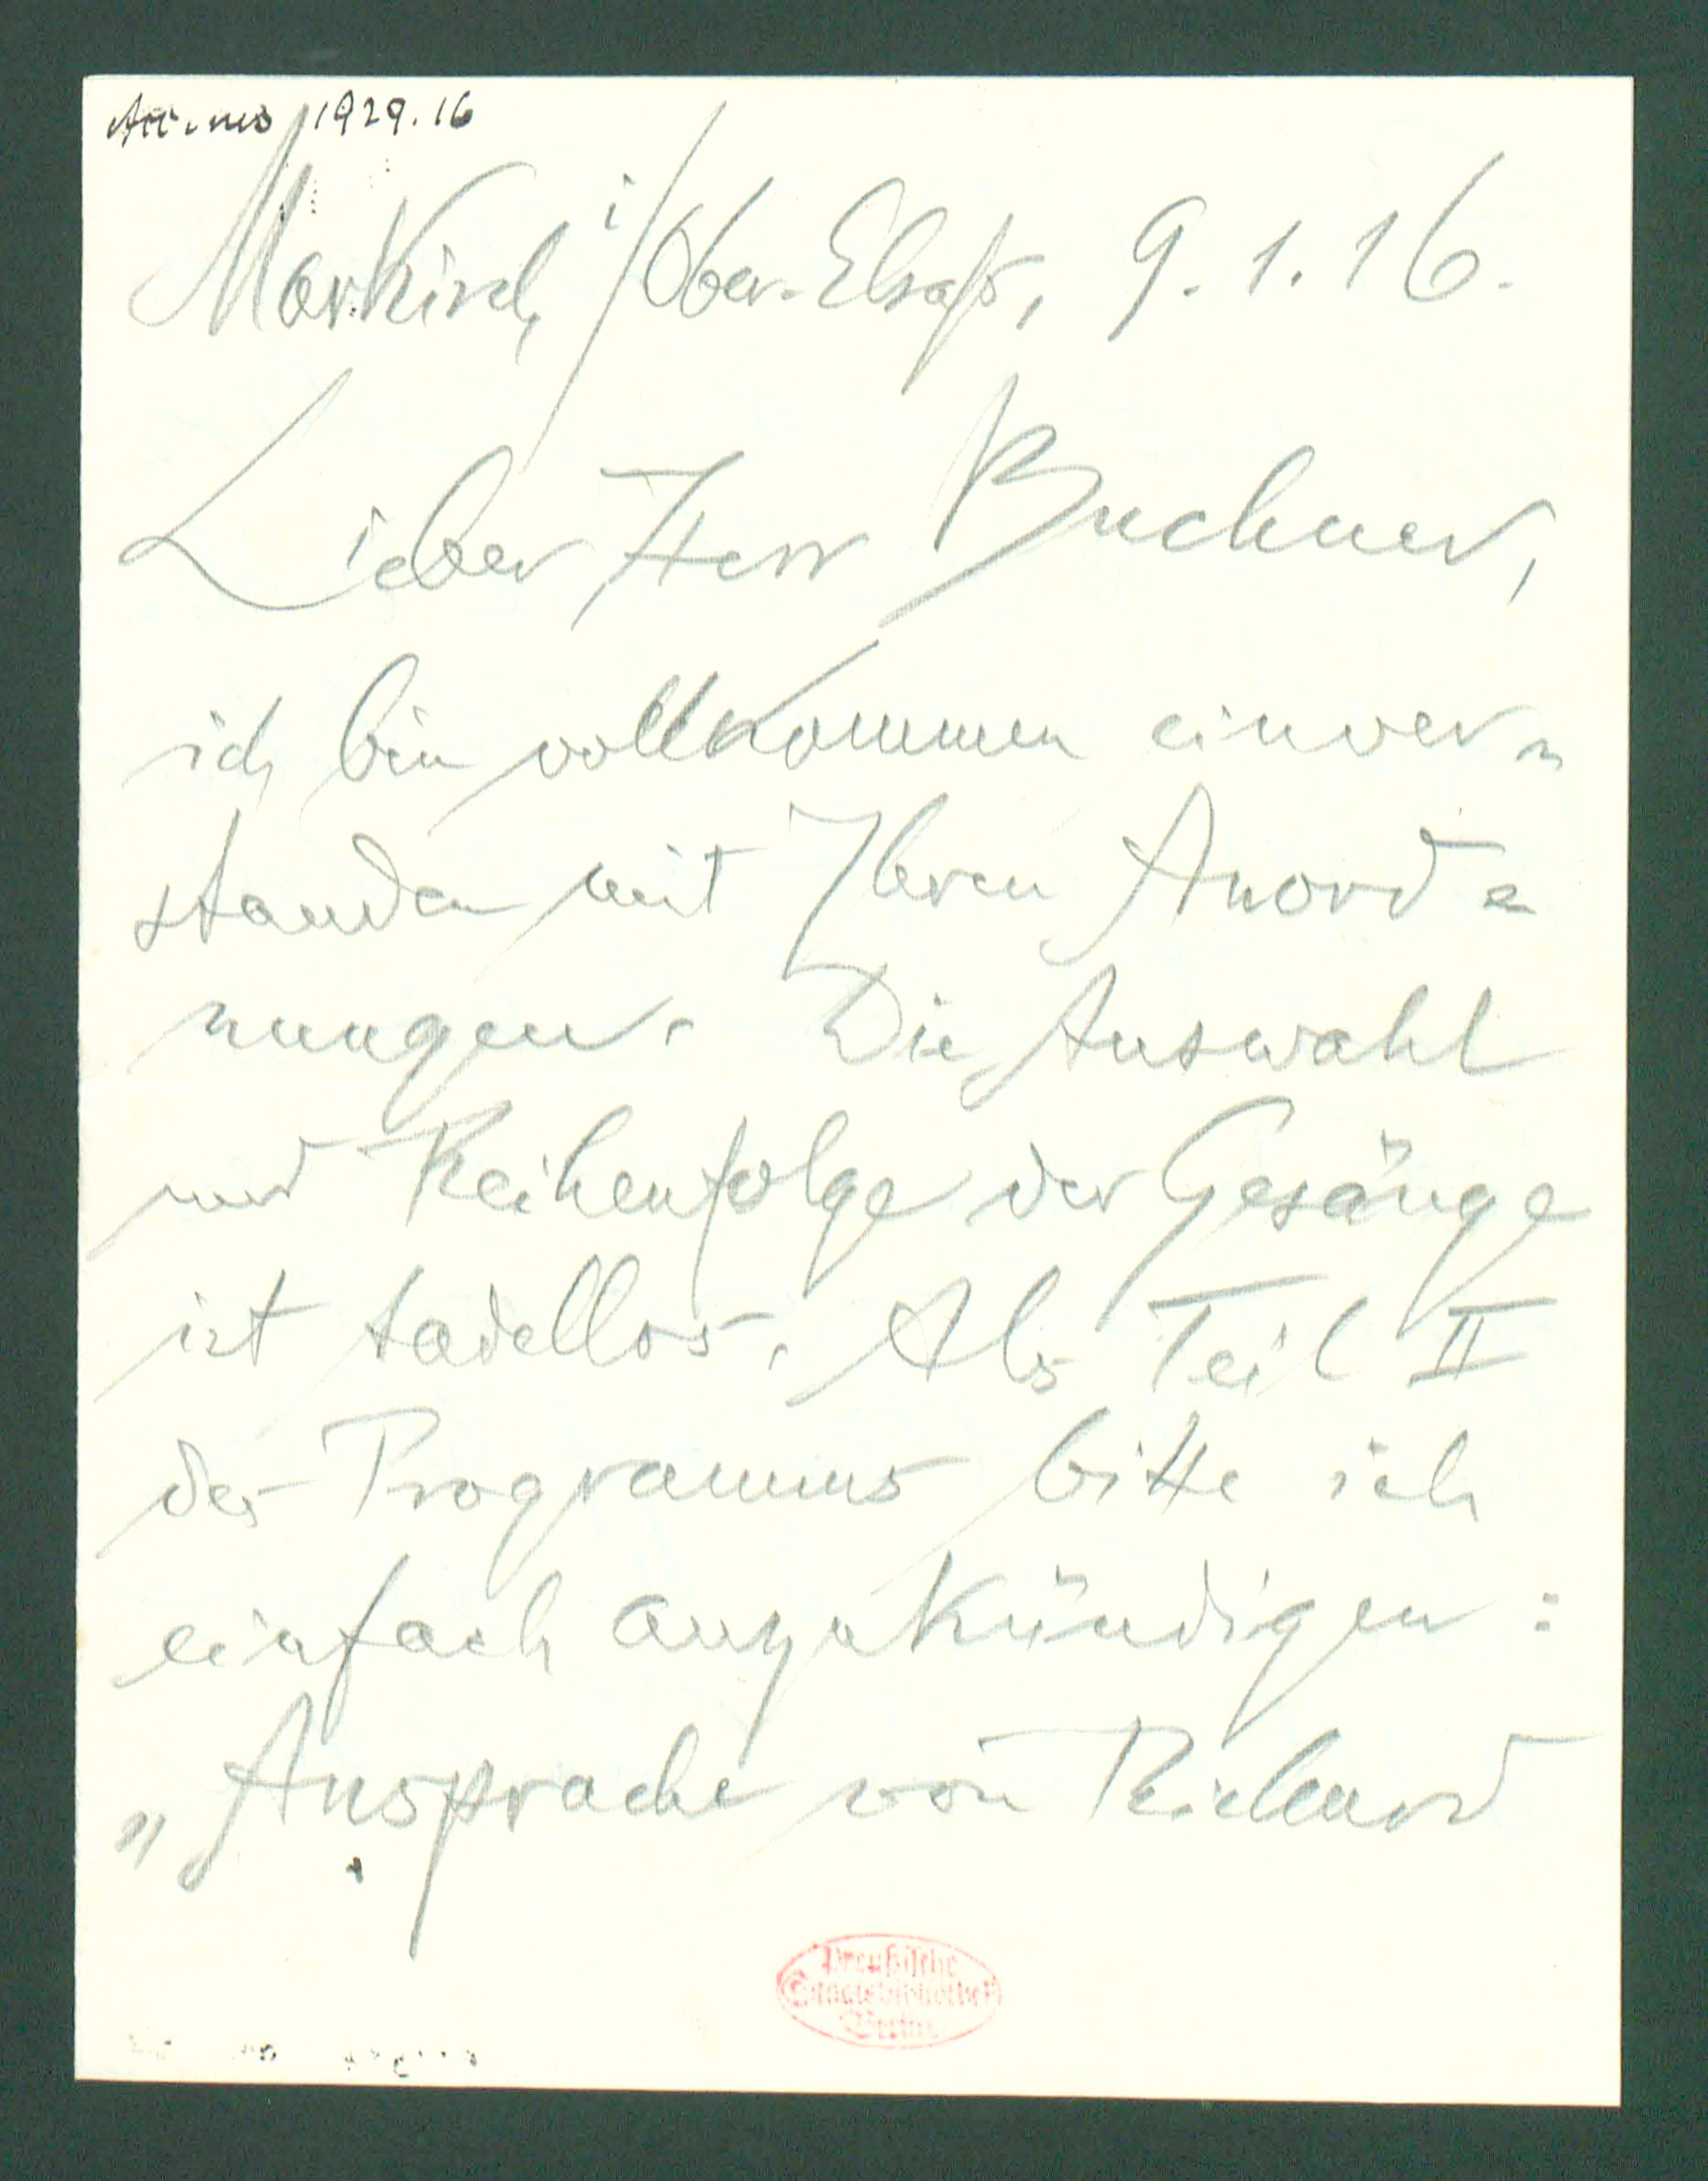 Acc. ms 1929.16
Markirch i/Ober-Elsaß, 9.1.16.
Lieber Herr Buchner,
ich bin vollkommen einver-
standen mit Ihren Anord-
nungen. Die Auswahl
und Reihenfolge der Gesänge
ist tadellos. Als Teil II
des Programms bitte ich
einfach anzukündigen:
„Ansprache von Richard
Preußische
Staatsbibliothek
Berlin